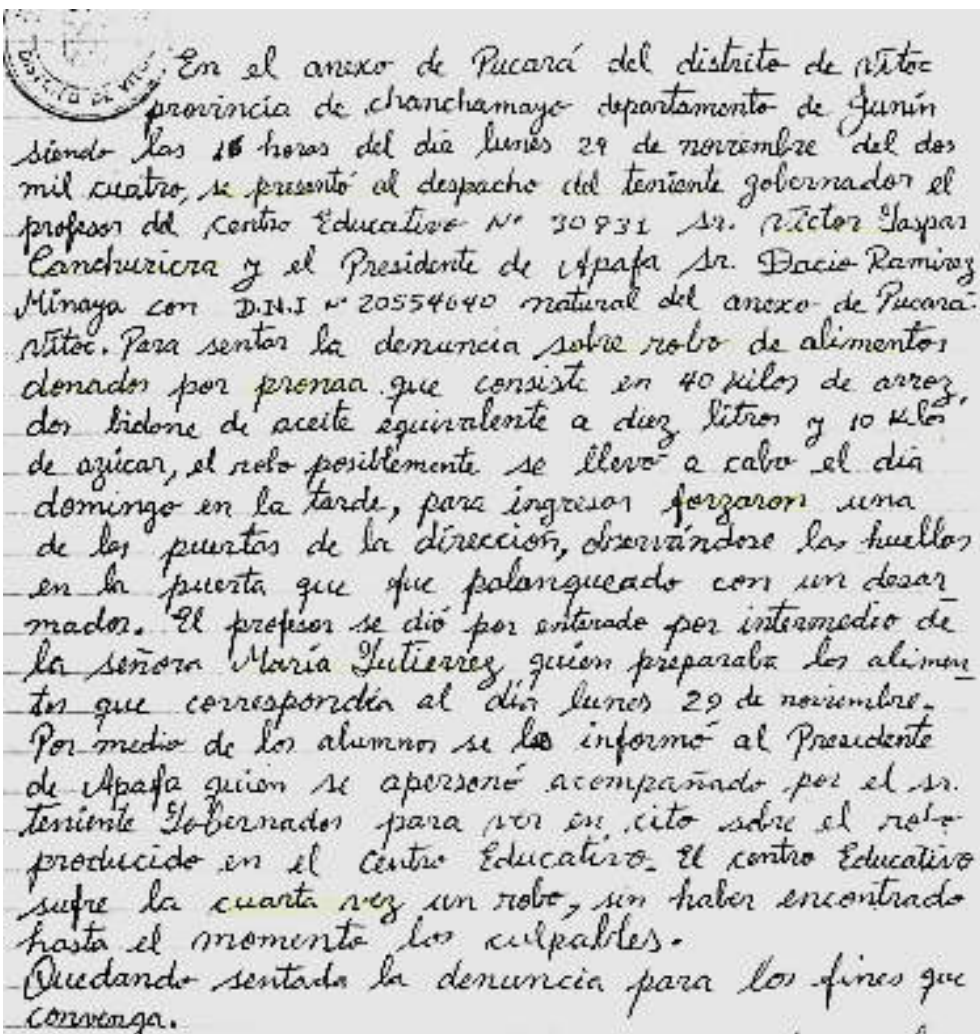 DISTRITO DE VITOC
En el anexo de Pucará del distrito de Vitoc
provincia de chanchamayo departamento de Junín
siendo las 16 horas del día lunes 29 de noviembre del dos
mil cuatro, se presentó al despacho del teniente gobernador el
profesor del Centro Educativo Nº 30831 Sr. Víctor Gaspar
Canchuricra y el Presidente de Apafa Sr. Dacio Ramirez
Minaya con D.N.I Nº 20554640 natural del anexo de Pucará-
Vitoc. Para sentar la denuncia sobre robo de alimentos
donados por pronaa que consiste en 40 kilos de arroz,
dos bidone de aceite equivalente a diez litros y 10 kilos
de azúcar, el robo posiblemente se llevó a cabo el día
domingo en la tarde, para ingresar forzaron una
de las puertas de la dirección, observándose las huellas
en la puerta que fue palanqueado con un desar
mador. El profesor se dió por enterado por intermedio de
la señora María Gutierrez quien preparaba los alimen
tos que correspondía al día lunes 29 de noviembre.
Por medio de los alumnos se informó al Presidente
de Apafa quien se apersonó acompañado por el sr.
teniente Gobernador para ver en cito sobre el robo
producido en el Centro Educativo. El centro Educativo
sufre la cuarta vez un robo, sin haber encontrado
hasta el momento los culpables.
Quedando sentada la denuncia para los fines que
convenga.